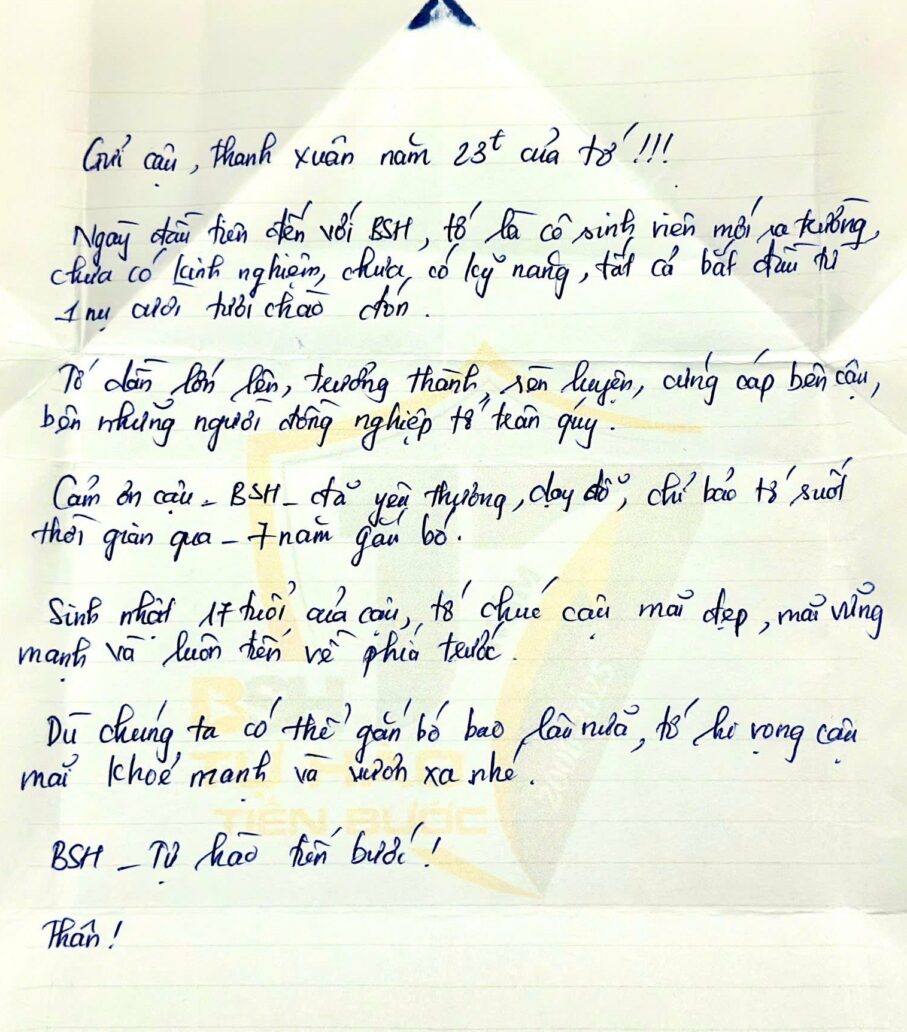 Gửi cậu, thanh xuân năm 23t của tớ!!!
Ngày đầu tiên đến với BSH, tớ là cô sinh viên mới ra trường,
chưa có kinh nghiệm, chưa có kỹ năng, tất cả bắt đầu từ
1 nụ cười tươi chào đón.
Tớ dần lớn lên, trưởng thành, rèn luyện, cứng cáp bên cậu,
bên những người đồng nghiệp tớ trân quý.
Cảm ơn cậu - BSH - đã yêu thương, dạy dỗ, chỉ bảo tớ suốt
thời gian qua - 7 năm gắn bó.
Sinh nhật 17 tuổi của cậu, tớ chúc cậu mãi đẹp, mãi vững
mạnh và luôn tiến về phía trước.
Dù chúng ta có thể gắn bó bao lâu nữa, tớ hi vọng cậu
mãi khoẻ mạnh và vươn xa nhé.
BSH - Tự hào tiến bước!
Thân!
BSH
TỰ HÀO
TIẾN BƯỚC